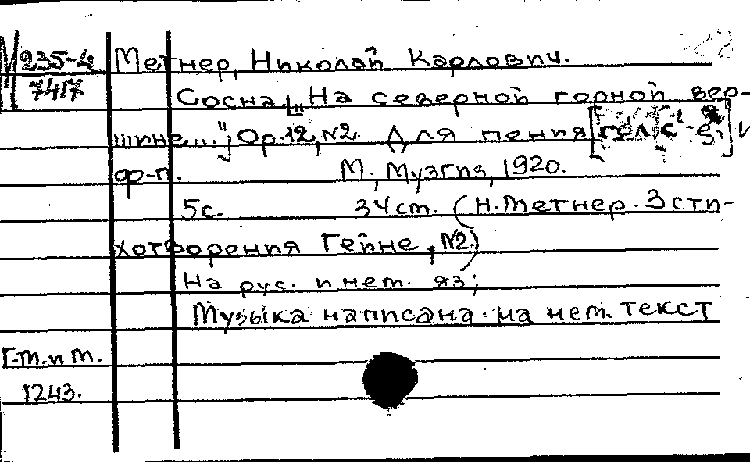 М 235-4
7417
Метнер, Николай Карлович.
Сосна „На северной горной вер-
шине...", Op. 12, №2. Для пения и
ф-п. М., Музгиз, 1920.
5с. 34 cm. (Н. Метнер. 3 сти-
хотворения Гейне, №2)
На рус. и нем. яз;
Музыка написана на нем. текст
Г.-М. и М.
1243.